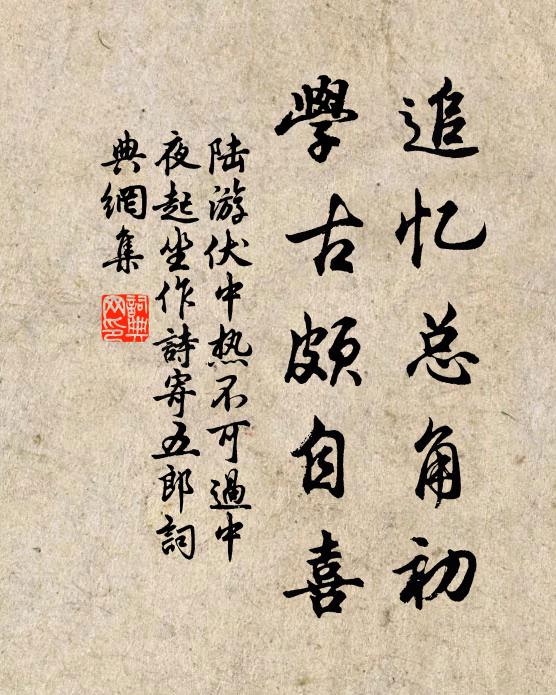 追忆总角初
學古頗自喜
陆游伏中热不可過中
夜起坐作詩寄五郎詞
典網集
詞典
网印